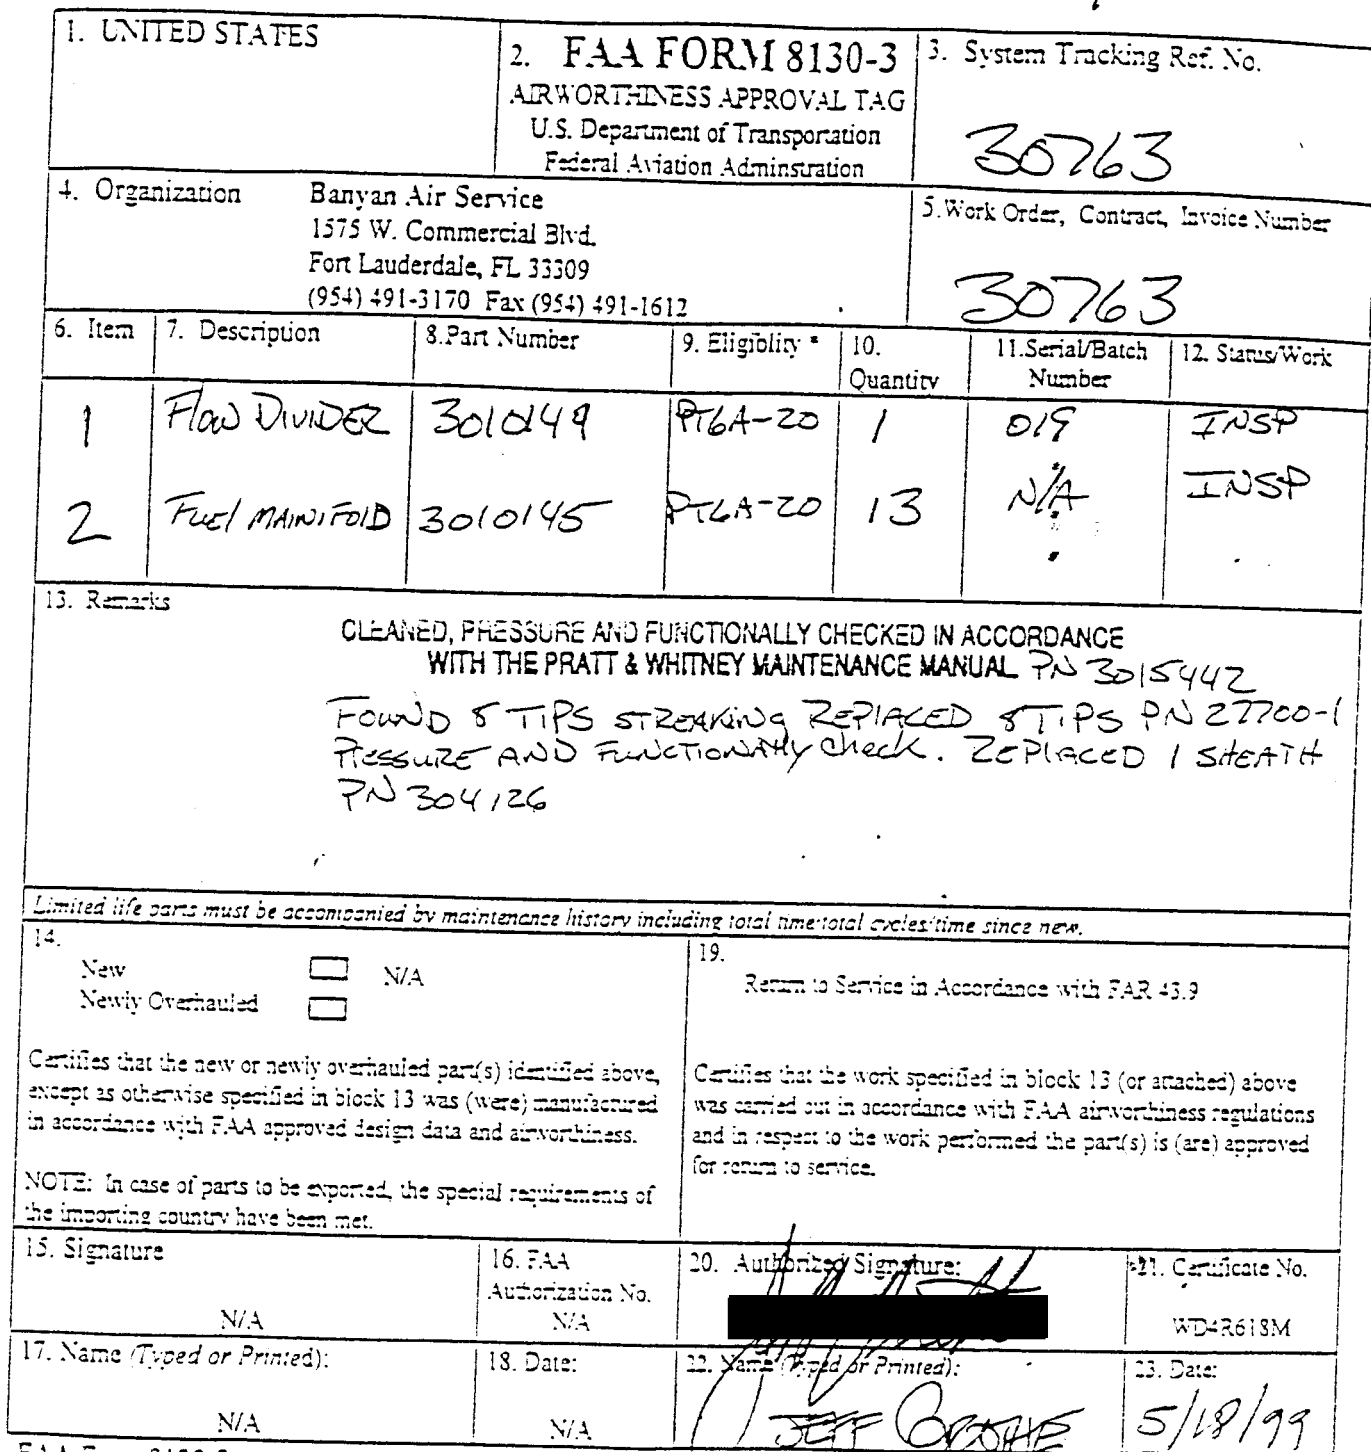 1. UNITED STATES
2. FAA FORM 8130-3
AIRWORTHINESS APPROVAL TAG
U.S. Department of Transportation
Federal Aviation Adminstration
3. System Tracking Ref. No.
30763
4. Organization
Banyan Air Service
1575 W. Commercial Blvd.
Fort Lauderdale, FL 33309
(954) 491-3170 Fax (954) 491-1612
5.Work Order, Contract, Invoice Number
30763
6. Item 7. Description 8.Part Number 9. Eligiblity * 10. Quantity 11.Serial/Batch Number 12. Status/Work
1 Flow DIVIDER 3010149 PT6A-20 1 019 INSP
2 FUEl MAINIFOlD 3010145 PT6A-20 13 N/A INSP
13. Remarks
CLEANED, PRESSURE AND FUNCTIONALLY CHECKED IN ACCORDANCE
WITH THE PRATT & WHITNEY MAINTENANCE MANUAL PN 3015442
FOUND 8 TIPS STREAKING REPLACED 8 TIPS PN 27700-1
PRESSURE AND FUNCTIONAlly check. REPLACED 1 SHEATH
PN 304126
Limited life parts must be accompanied by maintenance history including total time/total cycles/time since new.
14.
New N/A
Newly Overhauled
Certifies that the new or newly overhauled part(s) identified above,
except as otherwise specified in block 13 was (were) manufactured
in accordance with FAA approved design data and airworthiness.
NOTE: In case of parts to be exported, the special requirements of
the importing country have been met.
19.
Return to Service in Accordance with FAR 43.9
Certifies that the work specified in block 13 (or attached) above
was carried out in accordance with FAA airworthiness regulations
and in respect to the work performed the part(s) is (are) approved
for return to service.
15. Signature
N/A
16. FAA
Authorization No.
N/A
20. Authorized Signature:
21. Certificate No.
WD4R618M
17. Name (Typed or Printed):
N/A
18. Date:
N/A
22. Name (Typed or Printed):
JEFF
23. Date:
5/18/99